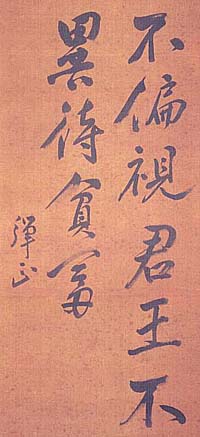 不偏視君王不
異待貧富
彈正